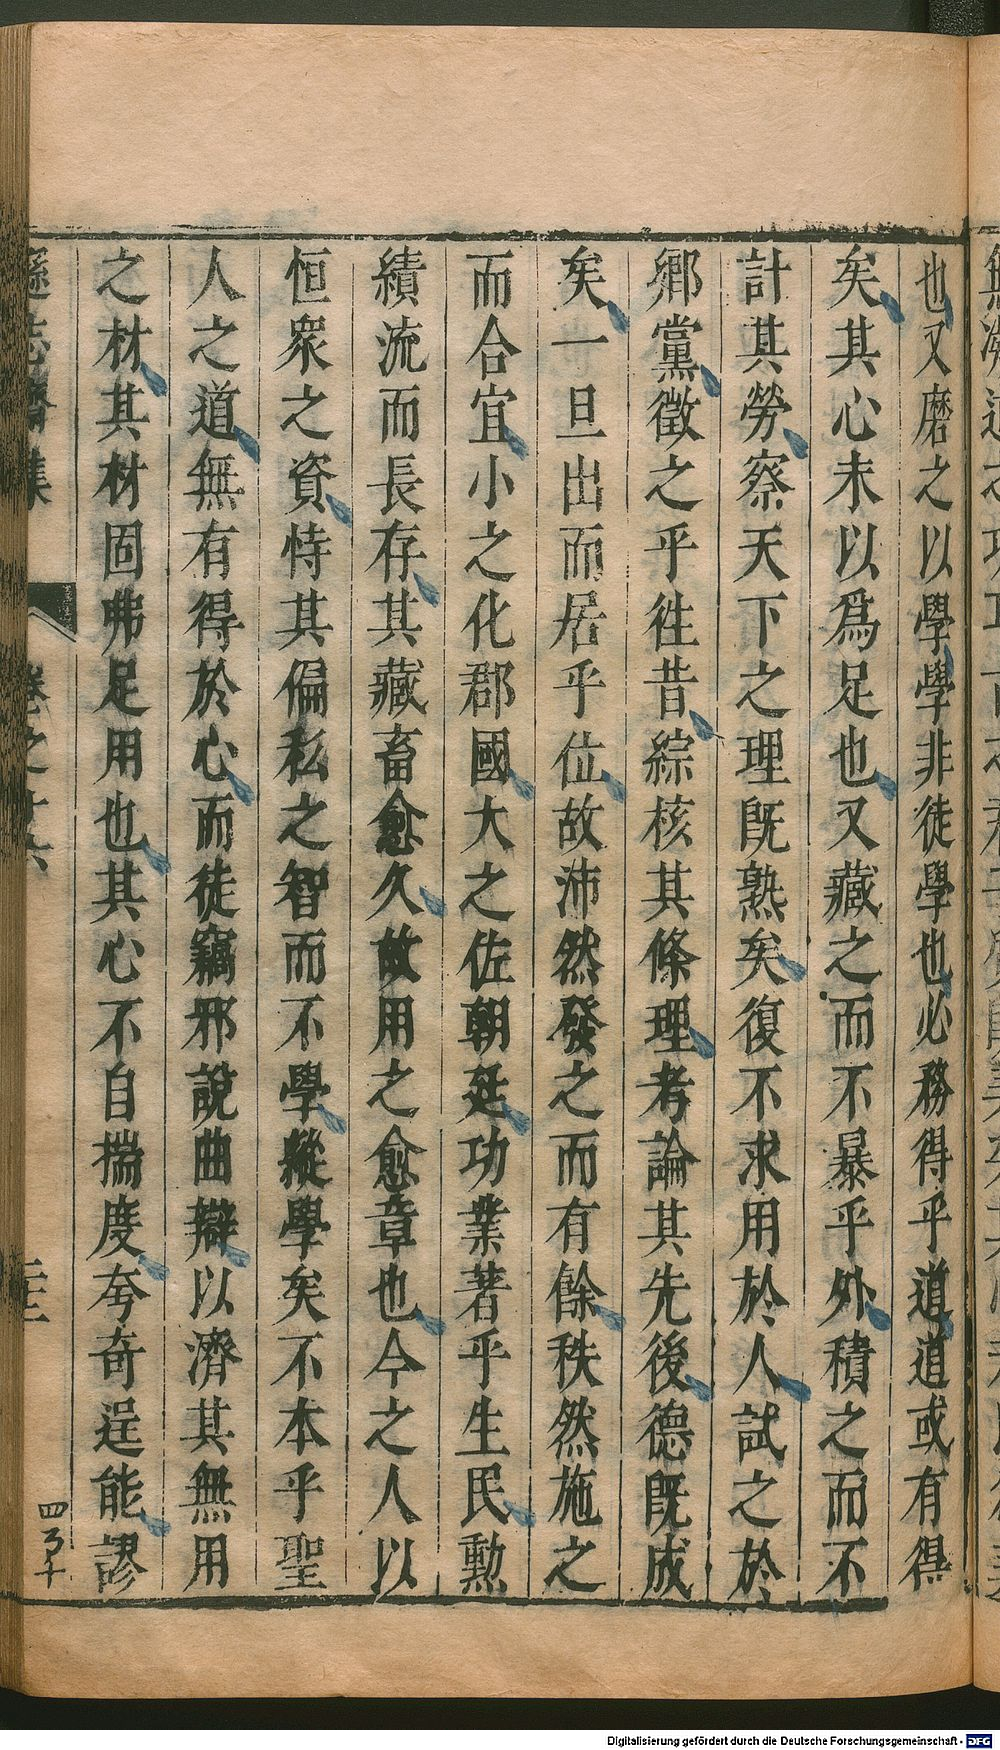 也又磨之以學學非徒學也必務得乎道道或有得
矣其心未以爲足也又藏之而不暴乎外積之而不
計其勞察天下之理既熟矣復不求用於人試之於
鄉黨徵之乎徃昔綜核其條理考論其先後德既成
矣一旦出而居乎位故沛然發之而有餘秩然施之
而合宜小之化郡國大之佐朝廷功業著乎生民勲
績流而長存其藏畜愈久故用之愈章也今之人以
恒衆之資恃其偏私之智而不學縱學矣不本乎聖
人之道無有得於心而徒竊邪說曲辯以濟其無用
之材其材固弗足用也其心不自揣度夸奇逞能謬
遜志齋集
卷之十六
四
Digitalisierung gefördert durch die Deutsche Forschungsgemeinschaft - DFG